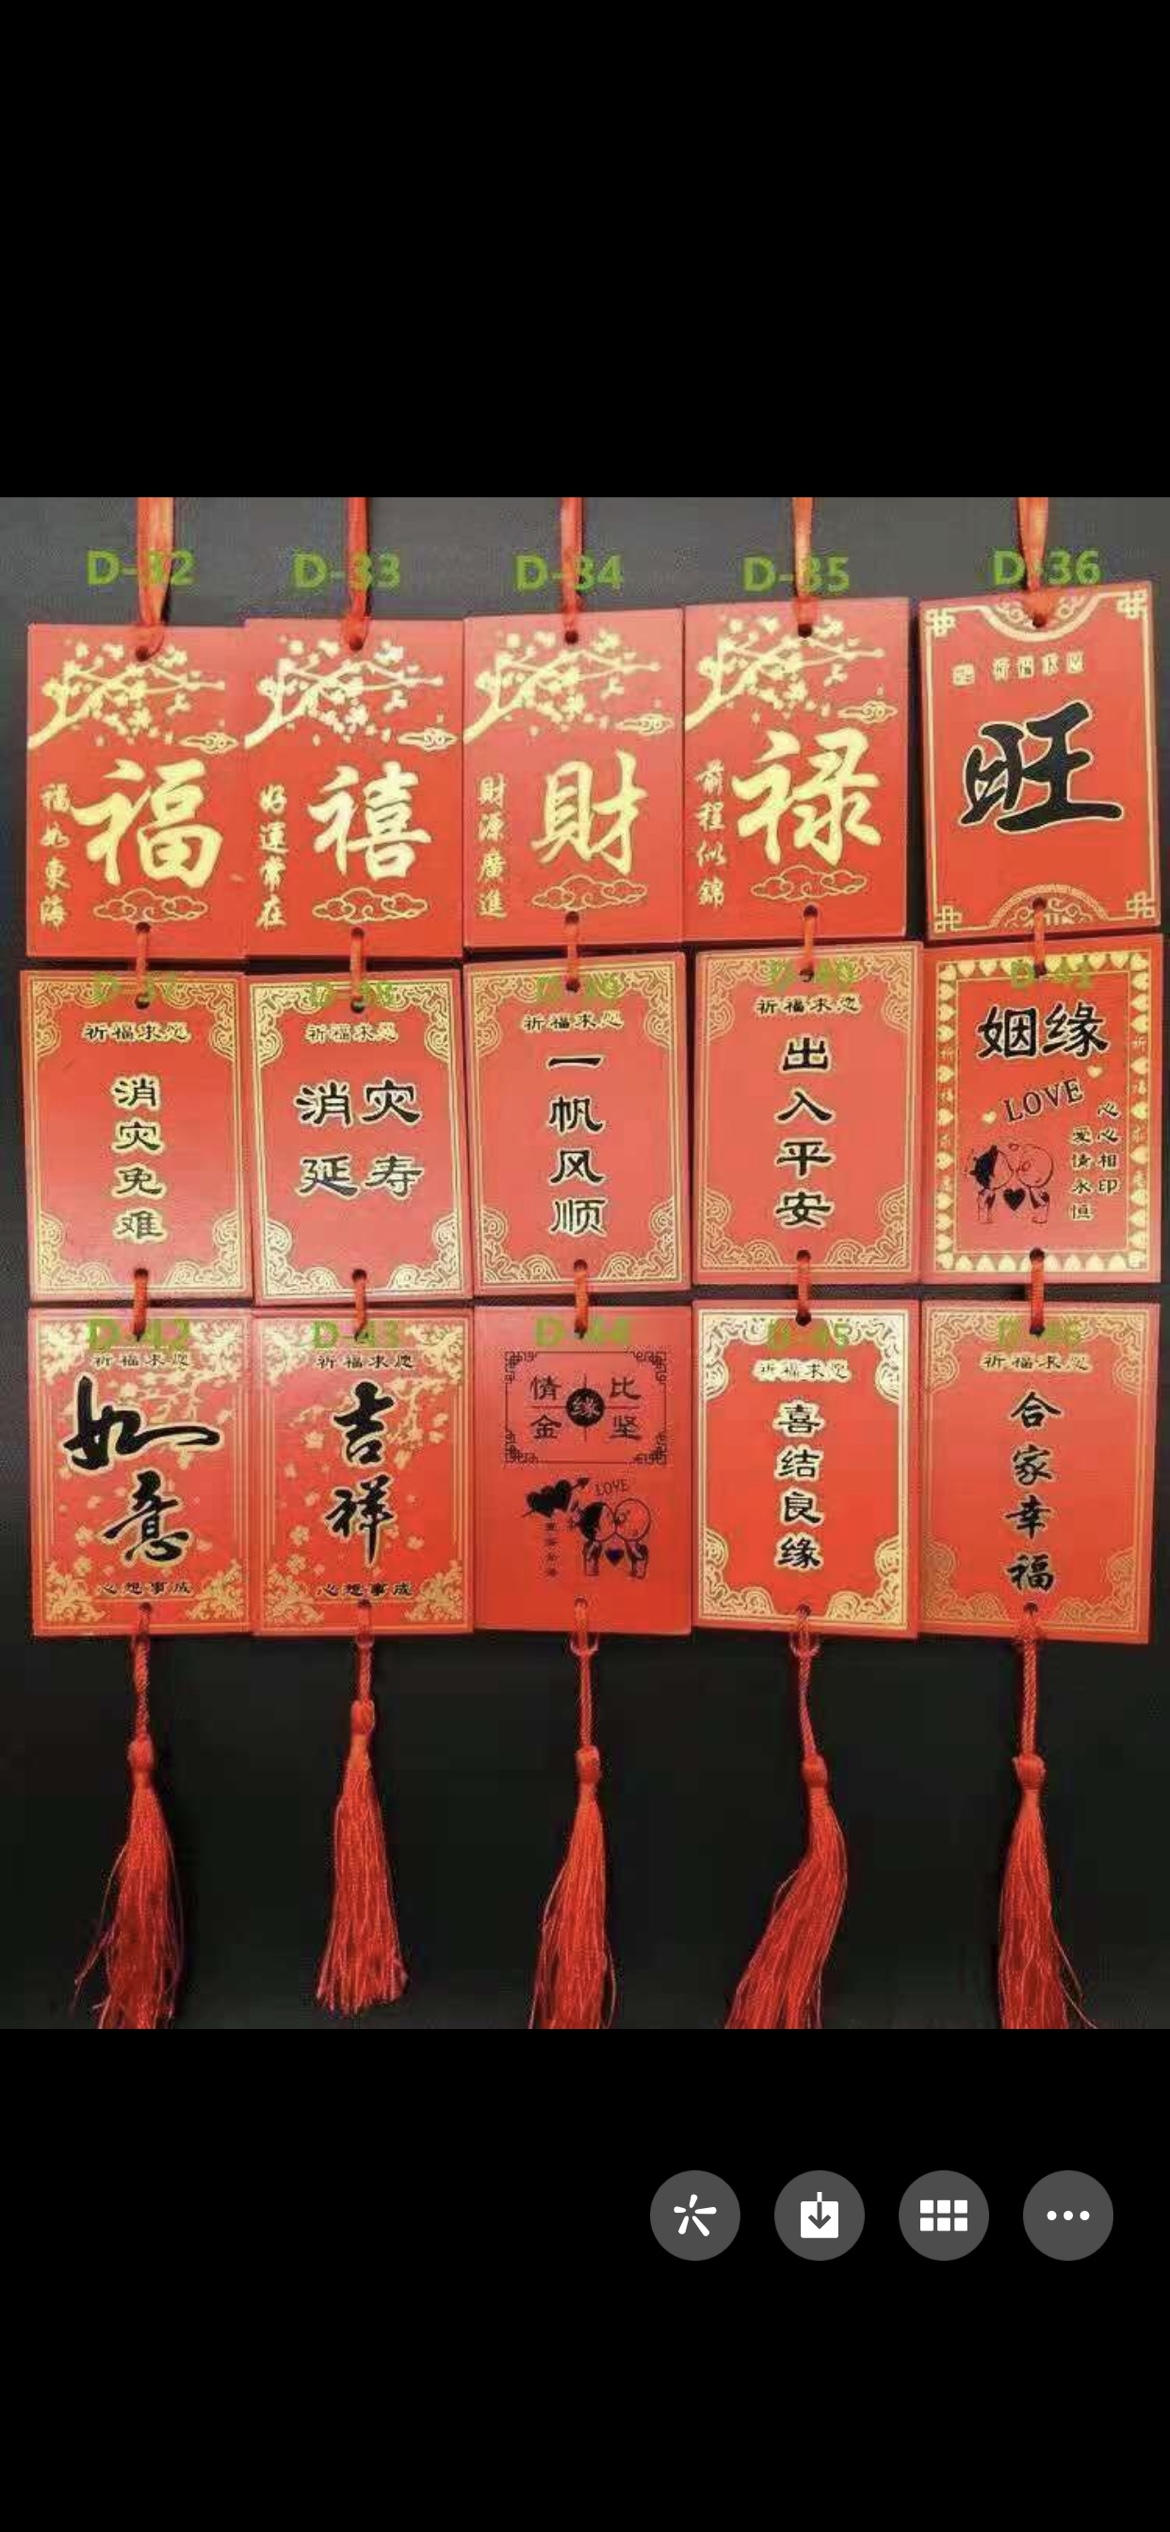 D-32
D-33
D-34
D-35
D-36
福
福如東海
禧
好運常在
財
財源廣進
禄
前程似錦
祈福求愿
旺
D-37
祈福求愿
消灾免难
D-38
祈福求愿
消灾
延寿
D-39
祈福求愿
一帆风顺
D-40
祈福求愿
出入平安
D-41
姻缘
LOVE
心心相印
爱情永恒
D-42
祈福求愿
如意
心想事成
D-43
祈福求愿
吉祥
心想事成
D-44
情比
缘
金坚
LOVE
D-45
祈福求愿
喜结良缘
D-46
祈福求愿
合家幸福